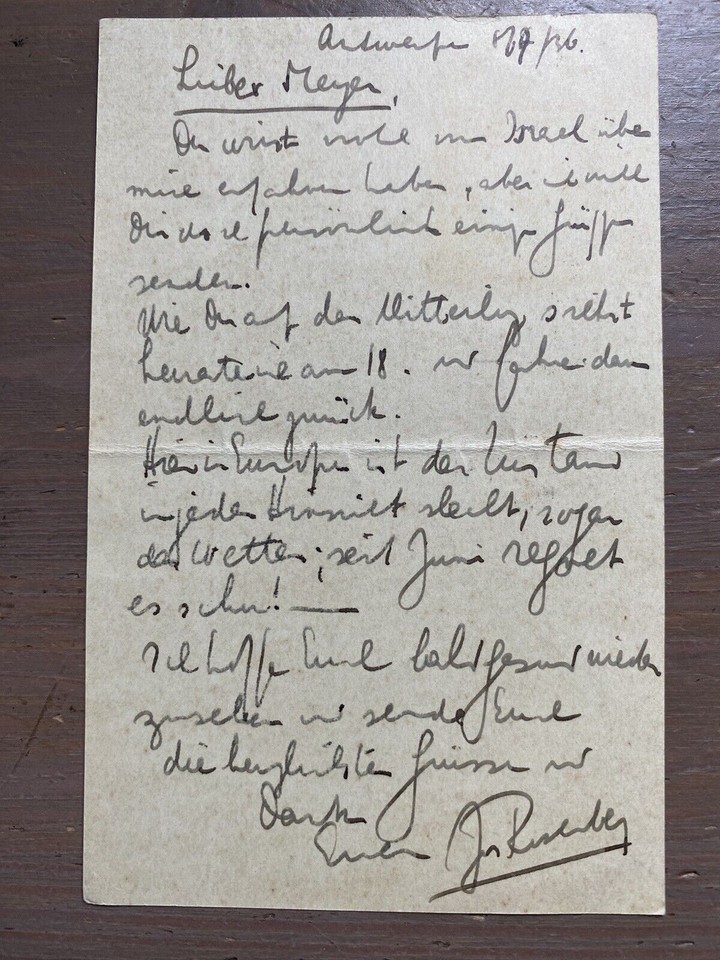 Antwerpen /7/36.
Lieber Meyer,
Du wirst wohl von Israel über
mich erfahren haben, aber ich will
Dir doch persönlich einige Grüsse
senden.
Wie Du auf der Mitteilung siehst
heirate ich am 18. und fahre dann
endlich zurück.
Hier in Europa ist der Zustand
in jeder Hinsicht slecht, sogar
das Wetter; seit Juni regnet
es schon! —
Ich hoffe Euch bald gesund wieder
zusehen und sende Euch
die herzlichsten Grüsse und
Dank
Euer Jos Rosenberg